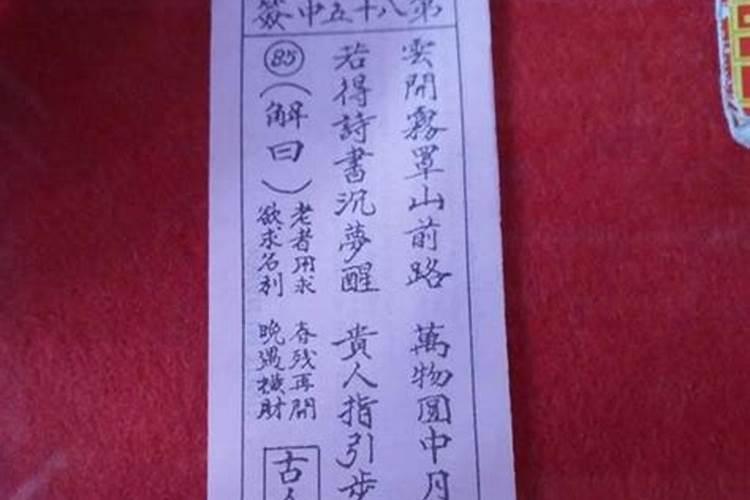 第八十五中簽
雲開霧罩山前路　萬物圓中月
若得詩書沉夢醒　貴人指引步
85
（解曰）
老者用求　春残再開
欲求名利　晚遇橫財
古人